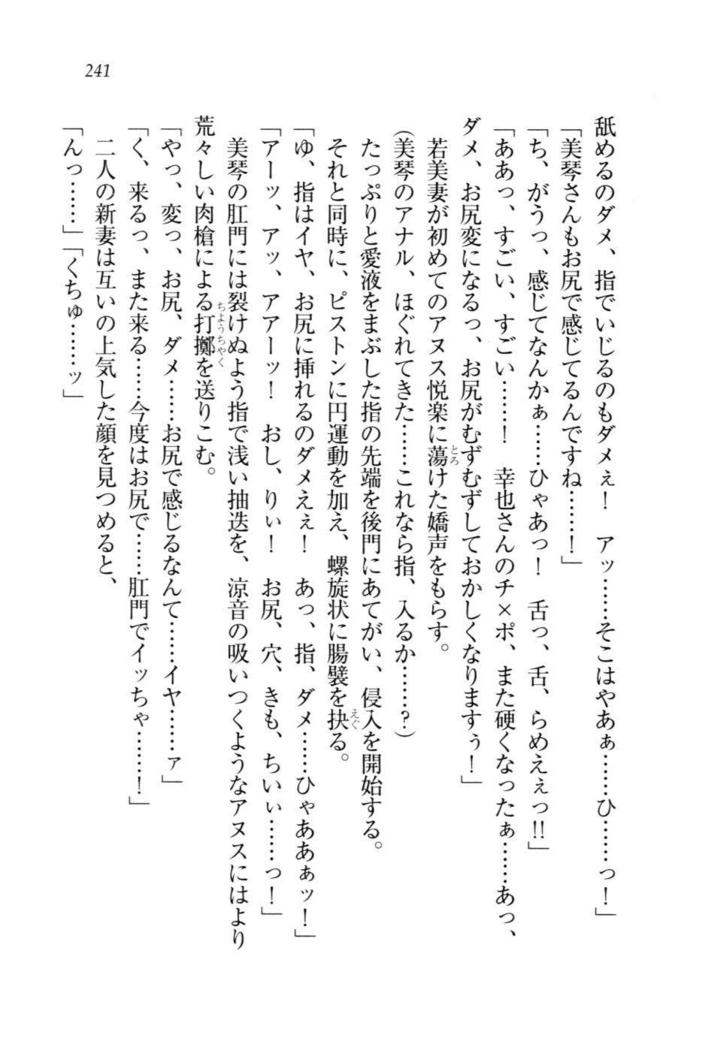 241
舐めるのダメ、指でいじるのもダメぇ！　アッ……そこはやあぁ……ひ……っ！」
「美琴さんもお尻で感じてるんですね……！」
「ち、がうっ、感じてなんかぁ……ひゃあっ！　舌っ、舌、らめえぇっ!!」
「ああっ、すごい、すごい……！　幸也さんのチ×ポ、また硬くなったぁ……あっ、
ダメ、お尻変になるっ、お尻がむずむずしておかしくなりますぅ！」
とろ
若美妻が初めてのアヌス悦楽に蕩けた嬌声をもらす。
(美琴のアナル、ほぐれてきた……これなら指、入るか……？)
たっぷりと愛液をまぶした指の先端を後門にあてがい、侵入を開始する。
えぐ
それと同時に、ピストンに円運動を加え、螺旋状に腸襞を抉る。
「ゆ、指はイヤ、お尻に挿れるのダメえぇ！　あっ、指、ダメ……ひゃああぁッ！」
「アーッ、アッ、アアーッ！　おし、りぃ！　お尻、穴、きも、ちいぃ……っ！」
美琴の肛門には裂けぬよう指で浅い抽迭を、涼音の吸いつくようなアヌスにはより
ちようちやく
荒々しい肉槍による打擲を送りこむ。
「やっ、変っ、お尻、ダメ……お尻で感じるなんて……イヤ……ァ」
「く、来るっ、また来る……今度はお尻で……肛門でイッちゃ……！」
二人の新妻は互いの上気した顔を見つめると、
「んっ……」「くちゅ……ッ」